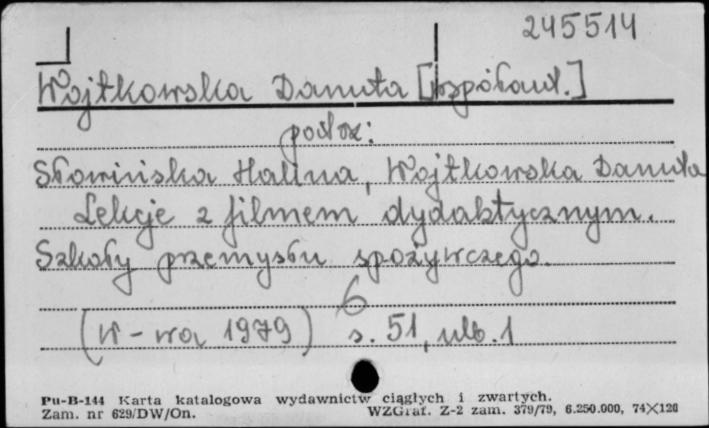 245514
Wojtkowska Danuta [współaut.]
patrz:
Słowińska Halina, Wojtkowska Danuta
Lekcje z filmem dydaktycznym.
Szkoły przemysłu spożywczego.
6
(W-wa 1979) s. 51, nlb. 1
Pu-B-144 Karta katalogowa wydawnictw ciągłych i zwartych.
Zam. nr 629/DW/On. WZGraf. Z-2 zam. 379/79, 6.250.000, 74×120